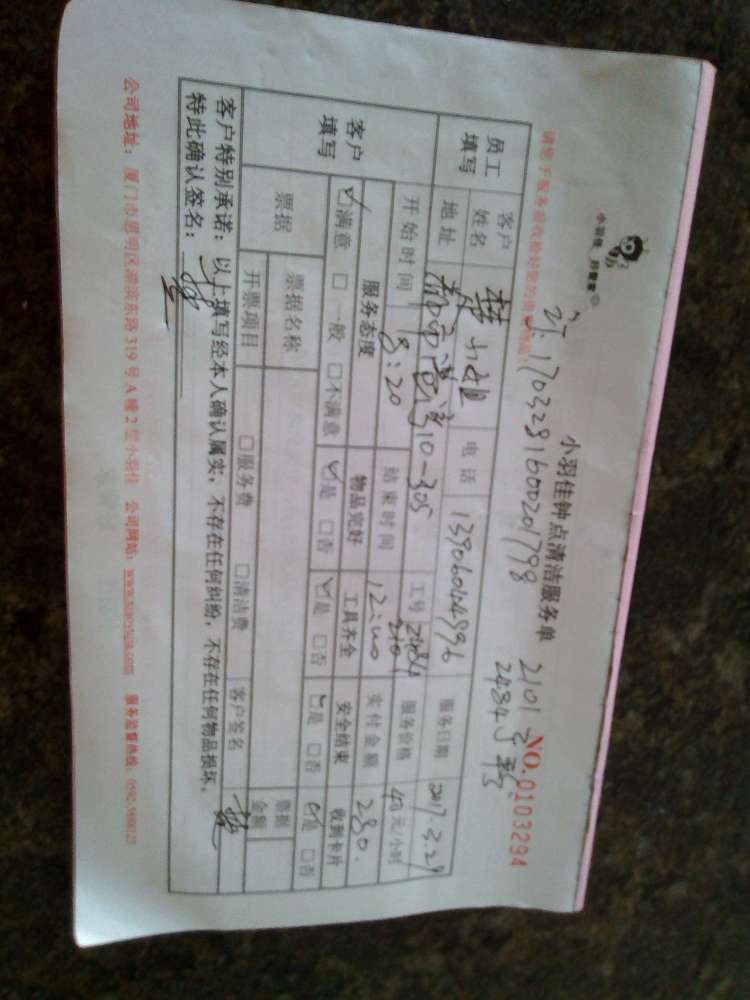 小羽佳 好管家
小羽佳钟点清洁服务单
NO.0103294
1703281600201798
2101
2484
员工填写 客户姓名 小姐 电话 13906044996 服务日期 2017.3.29
地址 10-305 工号 2484 2101 服务价格 40元/小时
客户填写 开始时间 8:20 结束时间 12:00 实付金额 280.
服务态度 物品完好 工具齐全 安全结束 收到卡片
☑满意 □一般 □不满意 ☑是 □否 ☑是 □否 ☑是 □否 ☑是 □否
票据 票据名称 票据金额
开票项目 □服务费 □清洁费 客户签名
客户特别承诺：以上填写经本人确认属实，不存在任何纠纷，不存在任何物品损坏，
特此确认签名：
公司地址：厦门市思明区湖滨东路319号A幢2层小羽佳 公司网站：www.xiaoyujia.com 服务监督热线：0592.5800123